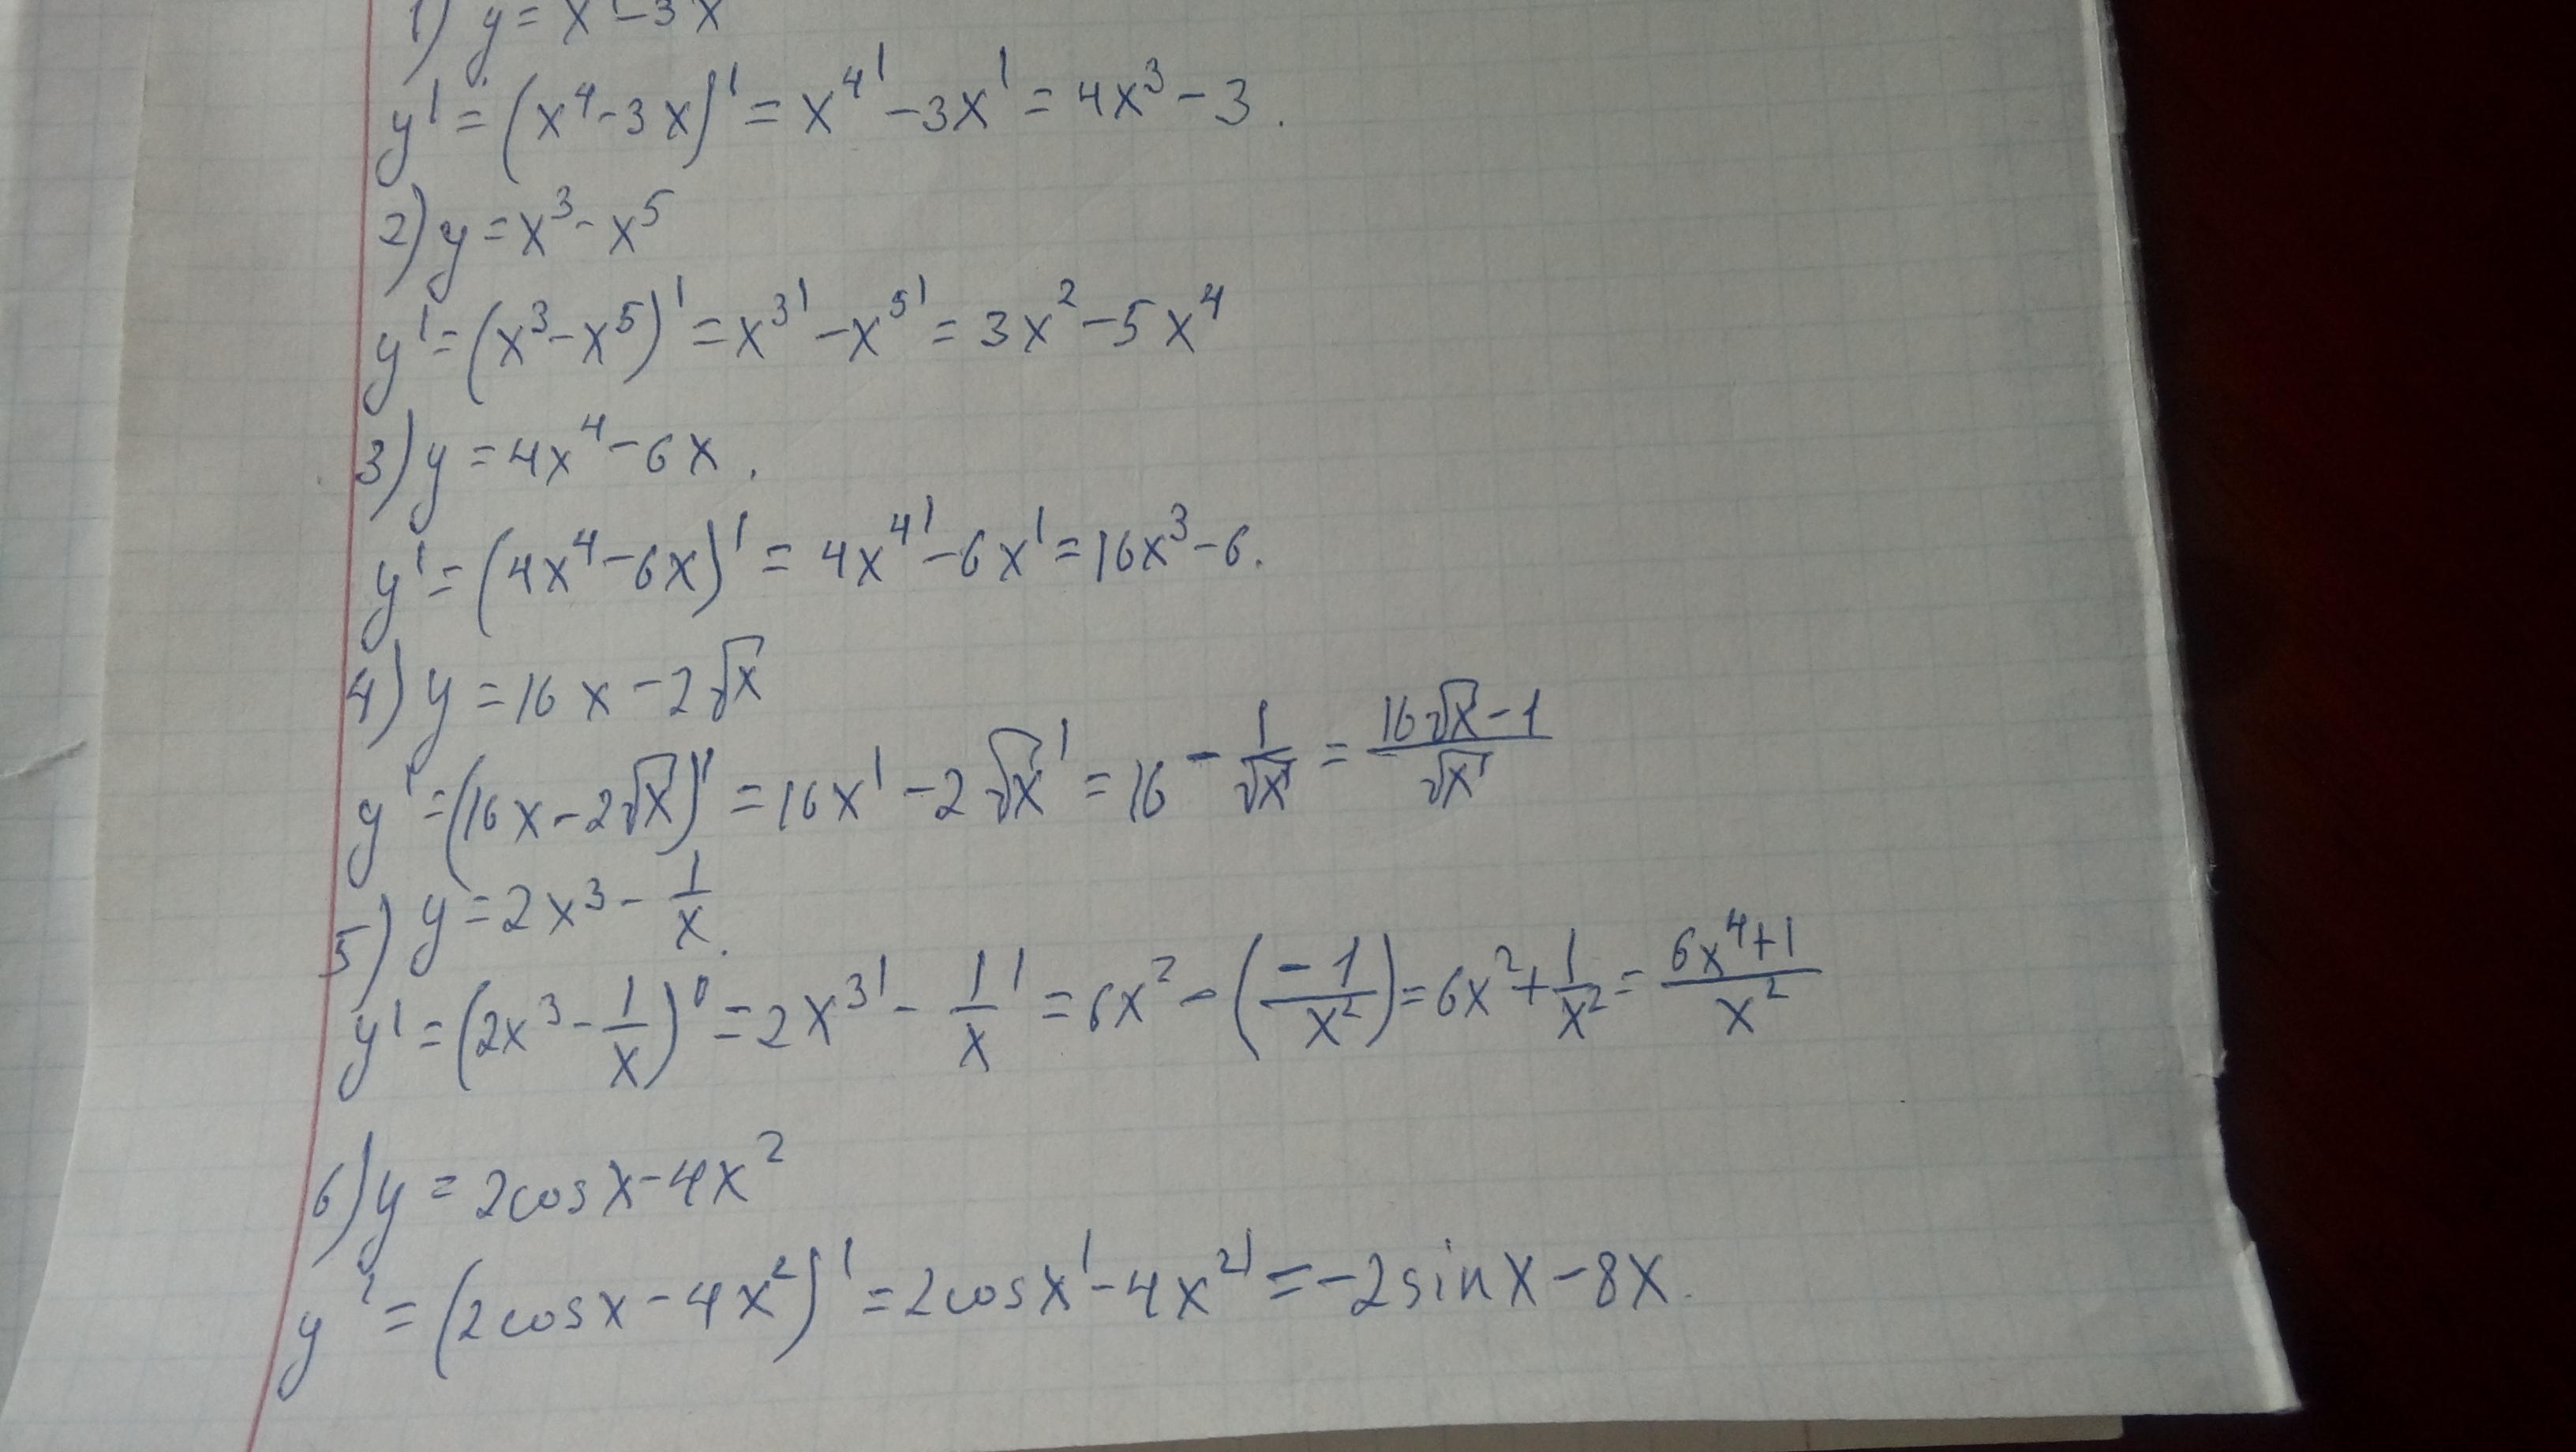 1) y = x⁴ - 3x
y' = (x⁴ - 3x)' = x⁴' - 3x' = 4x³ - 3.
2) y = x³ - x⁵
y' = (x³ - x⁵)' = x³' - x⁵' = 3x² - 5x⁴
3) y = 4x⁴ - 6x.
y' = (4x⁴ - 6x)' = 4x⁴' - 6x' = 16x³ - 6.
4) y = 16x - 2√x
y' = (16x - 2√x)' = 16x' - 2√x' = 16 - 1/√x = (16√x - 1)/√x
5) y = 2x³ - 1/x.
y' = (2x³ - 1/x)' = 2x³' - 1/x' = 6x² - (-1/x²) = 6x² + 1/x² = (6x⁴ + 1)/x²
6) y = 2cosx - 4x²
y' = (2cosx - 4x²)' = 2cosx' - 4x²' = -2sinx - 8x.